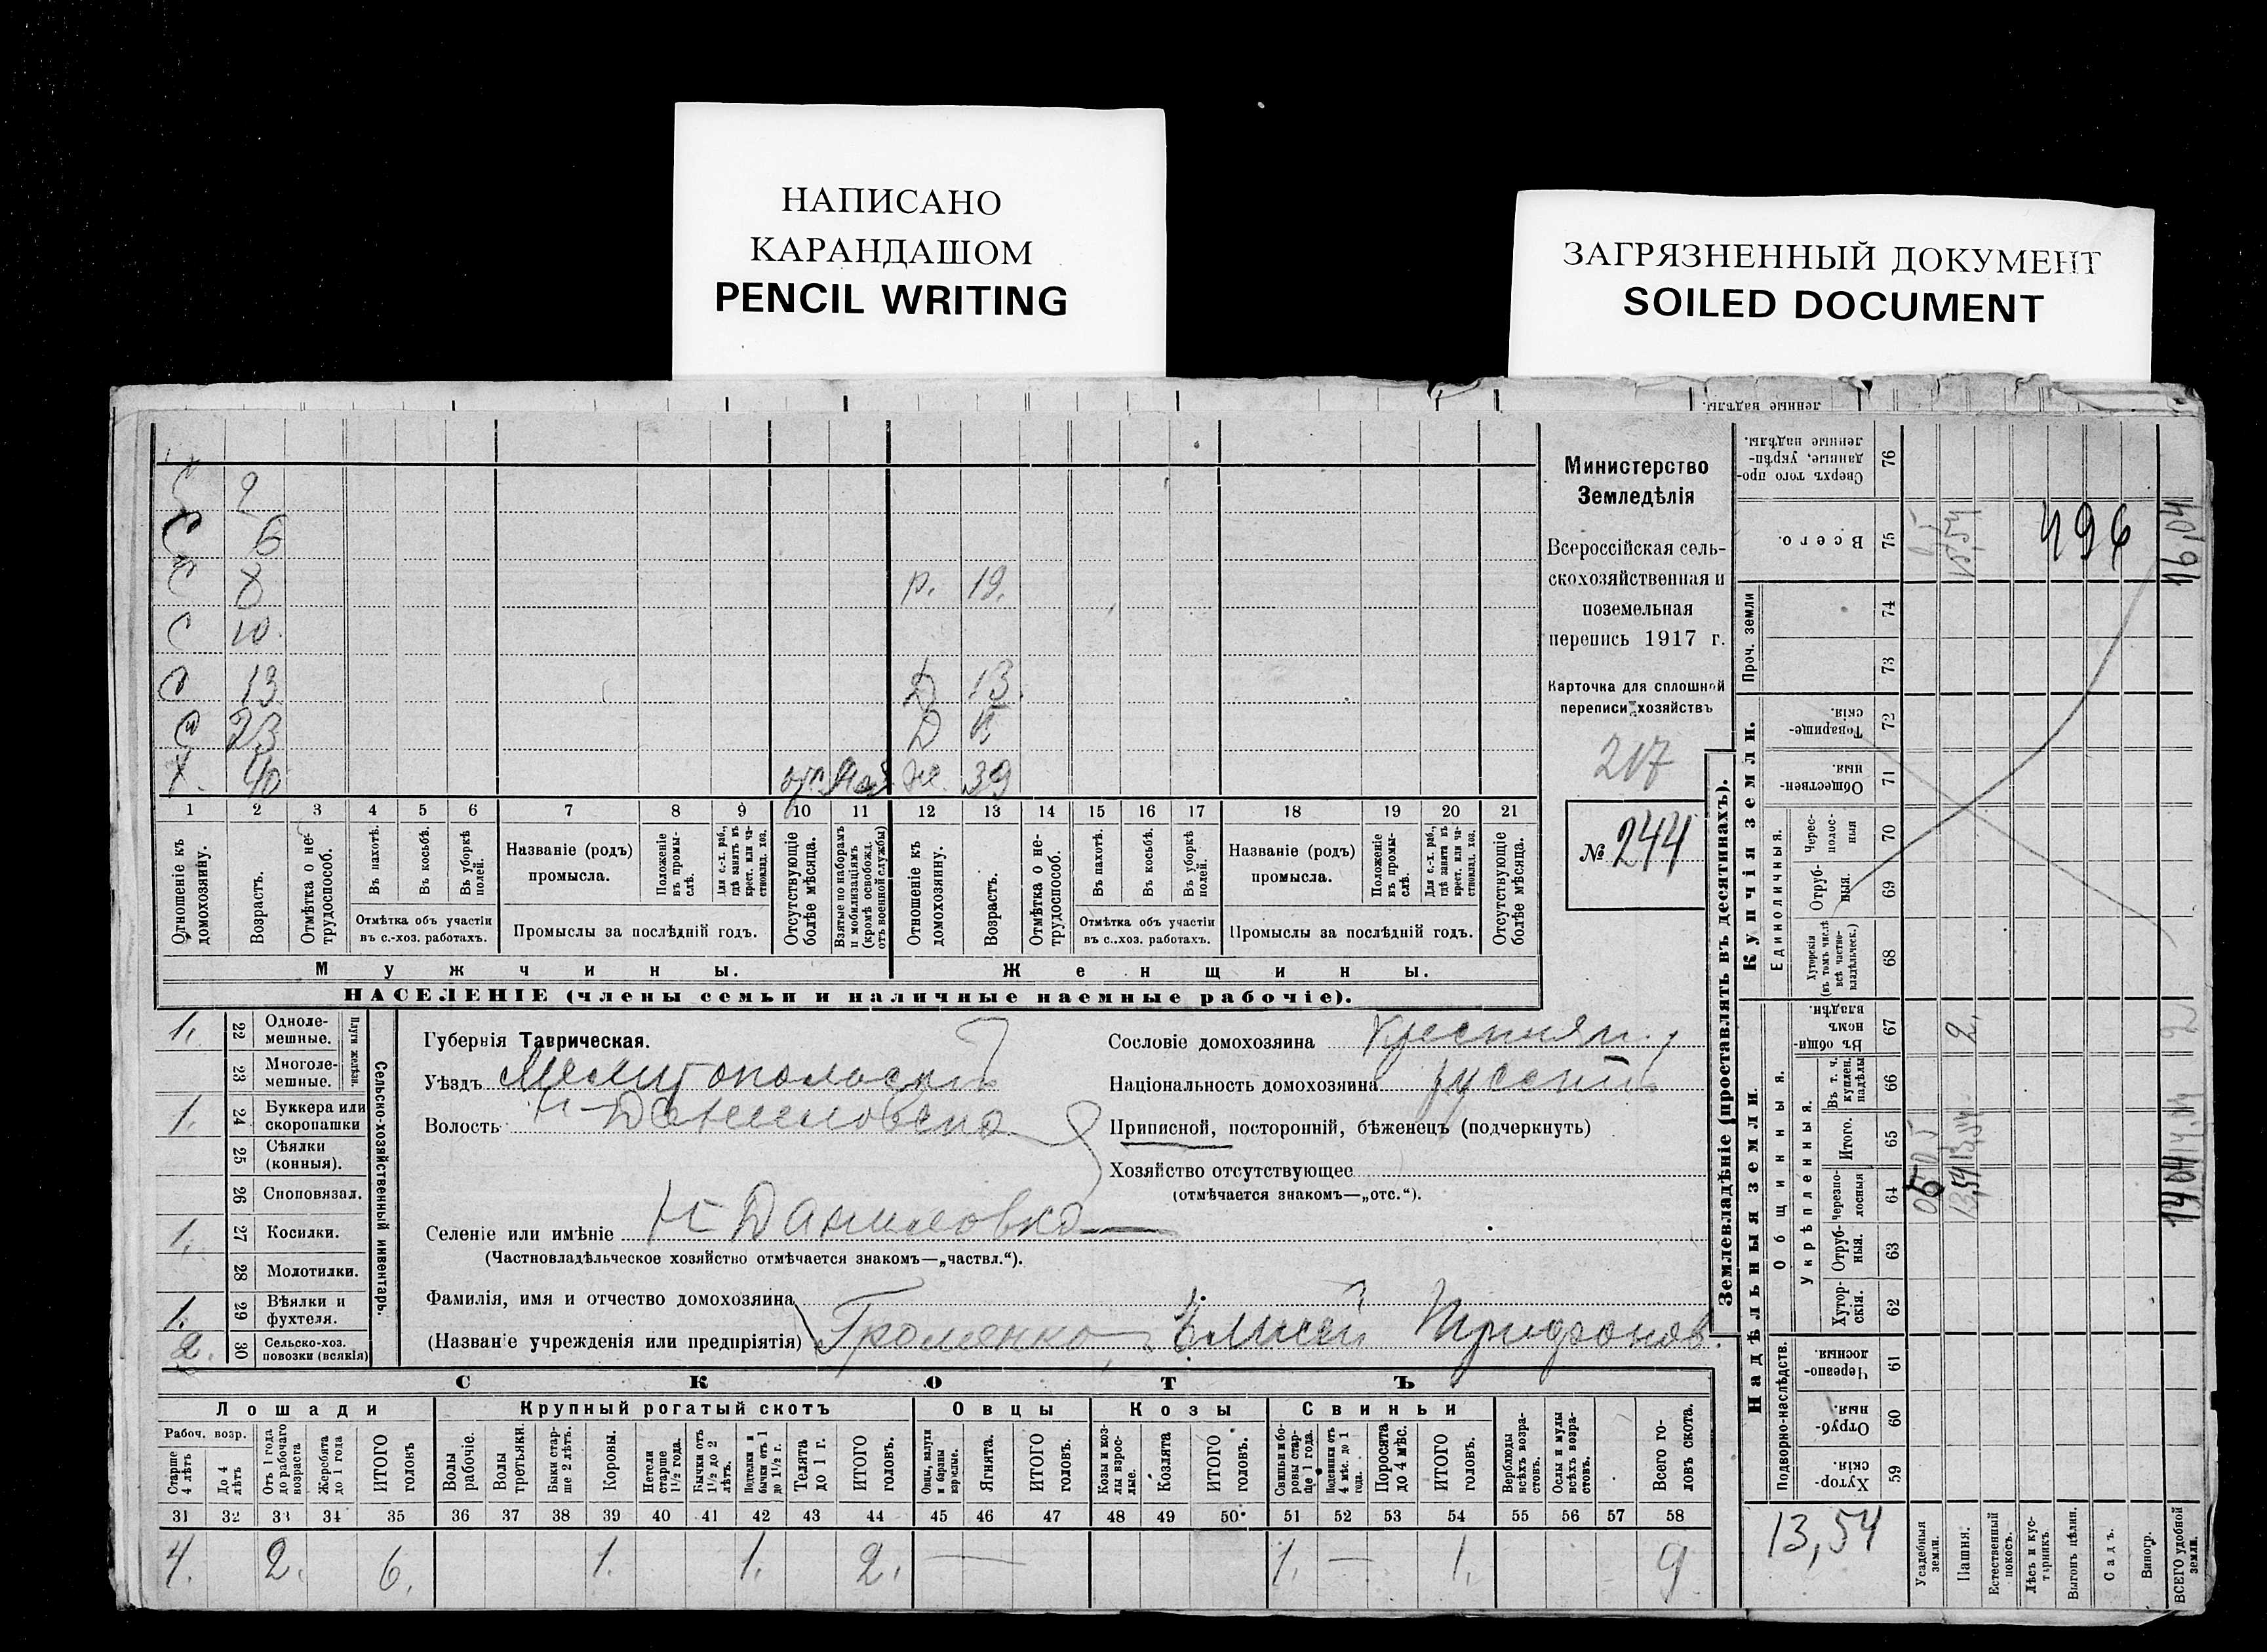 НАПИСАНО
КАРАНДАШОМ
PENCIL WRITING
ЗАГРЯЗНЕННЫЙ ДОКУМЕНТ
SOILED DOCUMENT
С 2
С 6
С 8 р. 19.
С 10.
С 13 Д 13.
С 23 Д
Х. 40 отс. же. 39
1 2 3 4 5 6 7 8 9 10 11 12 13 14 15 16 17 18 19 20 21
Отношеніе къ домохозяину.
Возрастъ.
Отмѣтка о нетрудоспособ.
Въ пахотѣ.
Въ косьбѣ.
Въ уборкѣ полей.
Отмѣтка объ участіи въ с.-хоз. работахъ.
Названіе (родъ) промысла.
Положеніе въ промыслѣ.
Для с.-х. раб., гдѣ занятъ въ крест. или частновлад. хоз.
Промыслы за послѣдній годъ.
Отсутствующіе болѣе мѣсяца.
Взятые по наборамъ и мобилизаціямъ (кромѣ освобожд. отъ военной службы)
Отношеніе къ домохозяину.
Возрастъ.
Отмѣтка о нетрудоспособ.
Въ пахотѣ.
Въ косьбѣ.
Въ уборкѣ полей.
Отмѣтка объ участіи въ с.-хоз. работахъ.
Названіе (родъ) промысла.
Положеніе въ промыслѣ.
Для с.-х. раб., гдѣ занята въ крест. или частновлад. хоз.
Промыслы за послѣдній годъ.
Отсутствующіе болѣе мѣсяца.
Мужчины.
Женщины.
НАСЕЛЕНІЕ (члены семьи и наличные наемные рабочіе).
Министерство
Земледѣлія
Всероссійская сель-
скохозяйственная и
поземельная
перепись 1917 г.
Карточка для сплошной
переписи хозяйствъ
217
№ 244
1. 22 Одноле-мешные.
23 Многоле-мешные.
Плуги желѣзн.
1. 24 Буккера или скоропашки
25 Сѣялки (конныя).
26 Сноповязал.
1. 27 Косилки.
28 Молотилки.
1. 29 Вѣялки и фухтеля.
2. 30 Сельско-хоз. повозки (всякія)
Сельско-хозяйственный инвентарь.
Губернія Таврическая.
Уѣздъ Мелитопольскій
Волость Н-Даниловска
Селеніе или имѣніе Н Даниловка
(Частновладѣльческое хозяйство отмѣчается знакомъ—„частвл.“).
Фамилія, имя и отчество домохозяина
(Названіе учрежденія или предпріятія) Громенко, Елисей Трифонов.
Сословіе домохозяина Крестьян.
Національность домохозяина русскій
Приписной, посторонній, бѣженецъ (подчеркнуть)
Хозяйство отсутствующее
(отмѣчается знакомъ—„отс.“).
СКОТЪ
Лошади
Крупный рогатый скотъ
Овцы
Козы
Свиньи
Рабоч. возр.
Старше 4 лѣтъ
До 4 лѣтъ
Отъ 1 года до рабочаго возраста
Жеребята до 1 года
ИТОГО головъ
Волы рабочіе.
Волы третьяки.
Быки старше 2 лѣтъ.
Коровы.
Нетели старше 1 1/2 года.
Бычки отъ 1 1/2 до 2 лѣтъ.
Подтелки и бычки отъ 1 до 1 1/2 г.
Телята до 1 г.
ИТОГО головъ.
Овцы, валухи и бараны взрослые.
Ягнята.
ИТОГО головъ.
Козы и козлы взрослые.
Козлята
ИТОГО головъ.
Свиньи и боровы старше 1 года.
Подсвинки отъ 4 мѣс. до 1 года.
Поросята до 4 мѣс.
ИТОГО головъ.
Верблюды всѣхъ возрастовъ.
Ослы и мулы всѣхъ возрастовъ.
Всего головъ скота.
31 32 33 34 35 36 37 38 39 40 41 42 43 44 45 46 47 48 49 50 51 52 53 54 55 56 57 58
4. 2. 6. 1. 1. 2. — 1. — 1. 9
Землевладѣніе (проставлять въ десятинахъ).
Надѣльныя земли.
Купчія земли.
Проч. земли
Подворно-наслѣдств.
Общинныя.
Укрѣпленныя.
Единоличныя.
Сверхъ того проданные, укрѣпленные надѣлы. 76
Всего. 75
74
73
Товарищескія. 72
Общественныя. 71
Чересполосныя 70
Отрубныя. 69
Хуторскія (въ томъ числѣ всѣ частновладѣльческ.) 68
Въ общинномъ владѣн. 67
Въ т. ч. куплен. надѣлы 66
Итого. 65
Черезполосныя 64
Отрубныя. 63
Хуторскія. 62
Черезполосныя 61
Отрубныя. 60
Хуторскія. 59
15,54
496
16,04
2.
2
13,54
13,54
14,04
14,04
13,54
Усадебныя земли.
Пашня.
Естественный покосъ.
Лѣсъ и кустарникъ.
Выгонъ цѣлин.
Садъ.
Виногр.
ВСЕГО удобной земли.